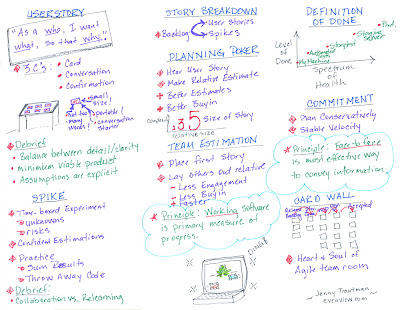 USER STORY
"As a who, I want
what, so that why."
3 C's: Card
Conversation
Confirmation
Small,
size!
Not too
many
words!
portable!
conversation
starter
Debrief
Balance between detail/clarity
minimum viable product
Assumptions are explicit
SPIKE
Time-boxed Experiment
unknowns
risks
Confident Estimations
Practice
Sum Results
Throw Away Code
Debrief:
Collaboration vs. Relearning
STORY BREAKDOWN
Backlog
User Stories
Spikes
PLANNING POKER
Hear User Story
Make Relative Estimate
Better Estimates
Better Buyin
1 3 5 Size of Story
relative size
TEAM ESTIMATION
Place first Story
Lay others out relative
- Less Engagement
- Less Buyin
+ Faster
Principle: Working Software
is primary measure of
progress.
DEFINITION
OF DONE
Level
of
Done
Prod.
Staging
Server
My Machine
Spectrum
of
Health
COMMITMENT
Plan Conservatively
Stable Velocity
Principle: Face to face
is most effective way
to convey information.
CARD WALL
Accepted
Heart & Soul of
Agile team room
- Jenny Trautman -